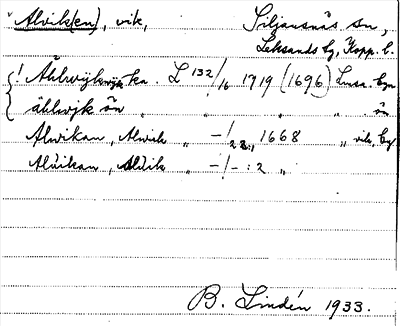 Alvik(en), vik, Siljansnäs sn,
Leksands tg, Kopp. l.
! Åhlwijkwijka . L 132/16 1719 (1696) Lnsn. byn
åhlwjk ön " " " ön
Alwikan, Alwik " -/22:1 1668 " vik, by
Alúikan, Alúik " -/- :2 "
B. Lindén 1933.